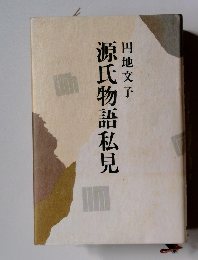 円地文子
源氏物語私見